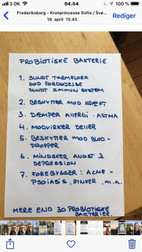 04.54
Frederiksberg - Kronprinsesse Sofie / Sve...
19. april 15.45
Rediger
PROBIOTISKE BAKTERIE
1. SUNDT TARMFLORA
GOD FORDØJELSE
SUNDT IMMUN SYSTEM
2. BESKYTTER MOD KRÆFT
3. DÆMPER ALLERGI: ASTMA
4. MODVIRKER
5. BESKYTTER MOD BLOD-
PROPPER
6. MINDSKER ANGST &
DEPRESSION
7. FOREBYGGER: ACNE -
PSOIASIS, M.A.
MERE END 30 PROBIOTISKE
BAKTERIER.